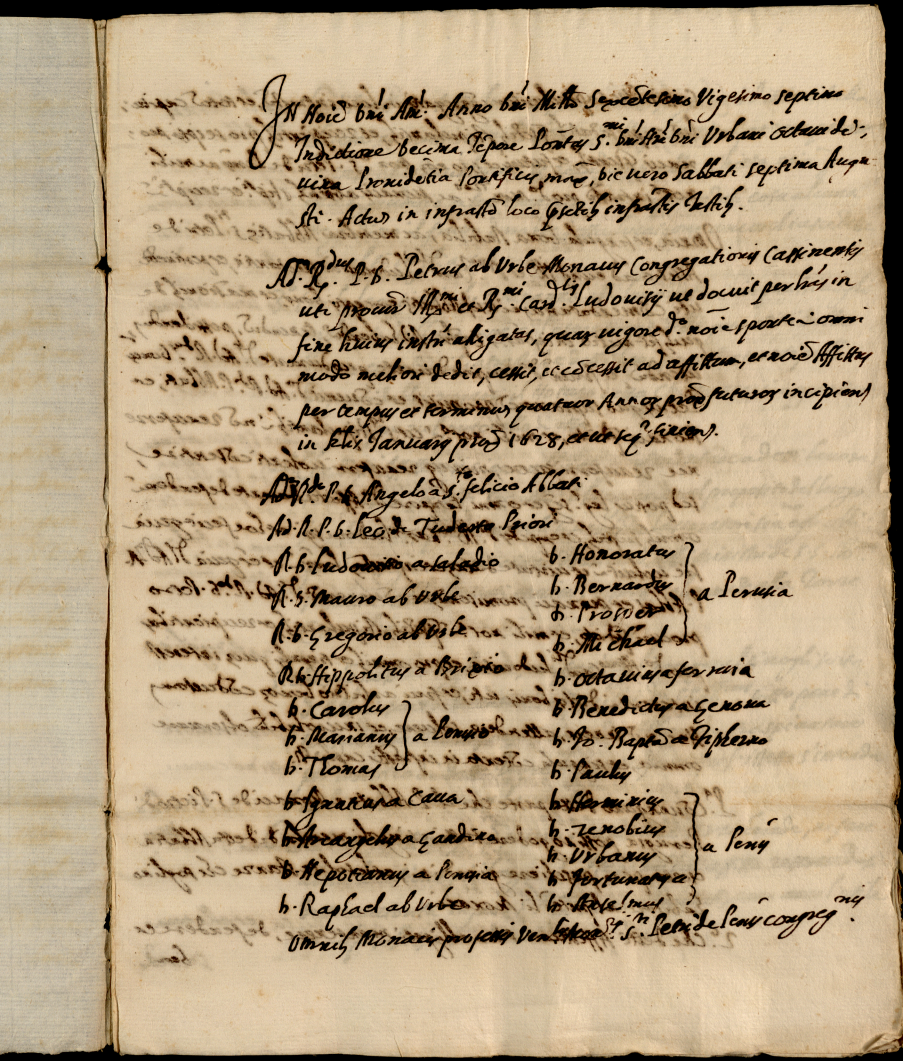 IN Noie Dni Am. Anno Dni Mill'o Sexcētesimo Vigesimo septimo
Indictione decima Tēpore Pontus S.mi Dni Nri Dni Urbani octaui di-
uina Prouidētia Pontificis max, die uero Sabbati septima Augu-
sti. Actus in infrasto loco pntib infrastis Testib.
Ad. R.dus P. D. Petrus ab Urbe Monacus Congregationis Cassinensis
uti procur Ill.mi et R.mi Card.lis Ludouisij ut docuit per lras in
fine huius instri alligatas, quas uigore d.o noie sponte omni
modo meliori dedit, cessit, et cōcessit ad affittum, et noie Affittus
per tempus et terminus quatuor Annos prox futuros incipiens
in Klis January prox 1628, et ut seq. finiens.
Ad. R.do P. D. Angelo a S.to felicio Abbati
Ad. R. P. D. Leo de Tuderto Priori
R. D. Ludouico a
R. D. Mauro ab Urbe
R. D. Gregorio ab Urbe
R. D. Hippolitus a Brixia
D. Carolus
D. Marianus a Perusio
D. Thomas
D. Ignatius a Caua
D. Arcangelus a
D. Nepotianus a Perusia
D. Raphael ab Urbe
D. Honoratus
D. Bernardus a Perusia
D. Prosper
D. Michael
D. octauius a
D. Benedictus a Genoua
D. Jo. Bapta a Tipherno
D. Paulus
D. Herminius
D. Zenobius
D. Urbanus a Perus
D. Fortunatus
D. Anselmus
Omnib Monacis professis Ven S.ti Petri de Perus congreg.nis